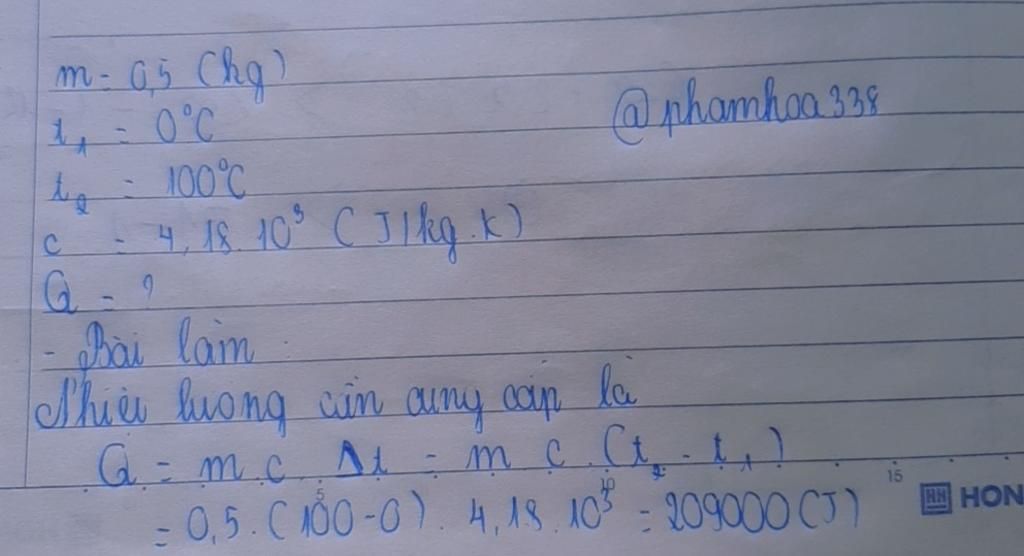 m = 0,5 (kg)
@phamhoa338
t₁ = 0°C
t₂ = 100°C
c = 4,18.10³ (J/kg.K)
Q = ?
- Bài làm
Nhiệt lượng cần cung cấp là
Q = m c Δt = m c (t₂ - t₁)
= 0,5.(100-0). 4,18.10³ = 209000(J)
15
HH HON